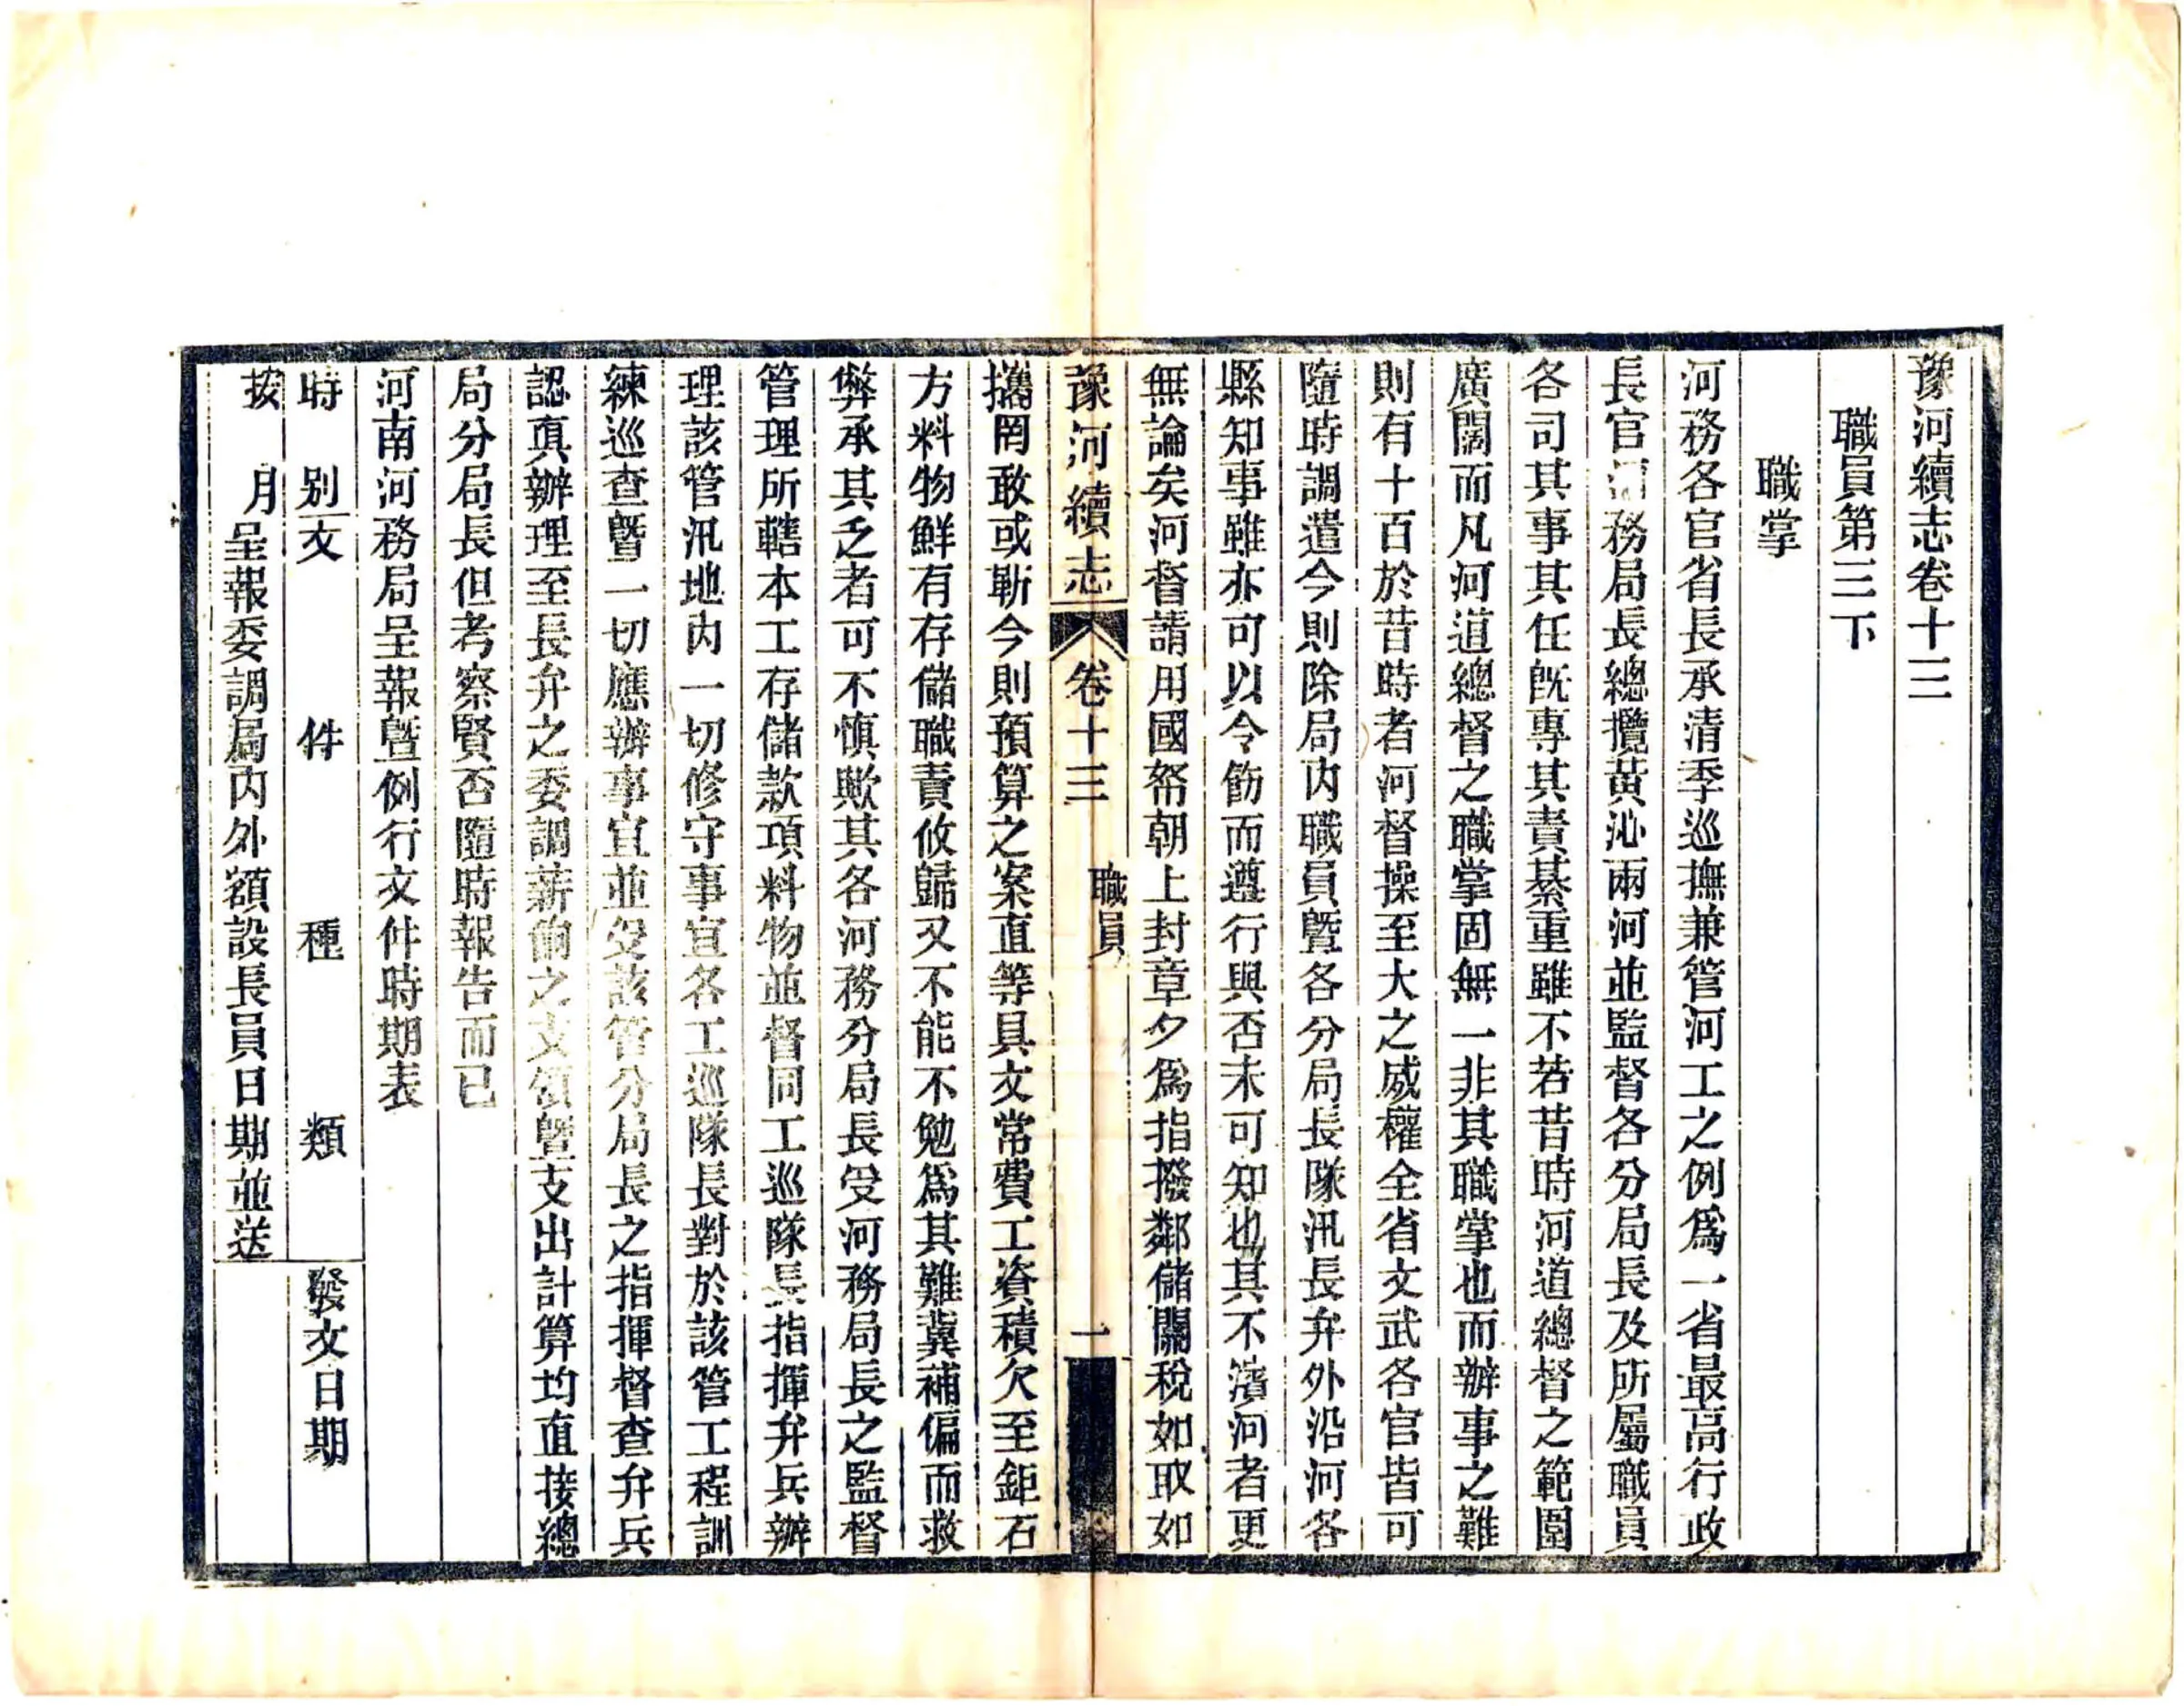 豫河續志卷十三
職員第三下
職掌
河務各官省長承清季巡撫兼管河工之例爲一省最高行政
長官河務局長總攬黃沁兩河並監督各分局長及所屬職員
各司其事其任既專其責綦重雖不若昔時河道總督之範圍
廣闊而凡河道總督之職掌固無一非其職掌也而辦事之難
則有十百於昔時者河督操至大之威權全省文武各官皆可
隨時調遣今則除局内職員曁各分局長隊汛長弁外沿河各
縣知事雖亦可以令飭而遵行與否未可知也其不濱河者更
無論矣河督請用國帑朝上封章夕爲指撥鄰儲關稅如取如
豫河續志 卷十三 職員 一
攜罔敢或靳今則預算之案直等具文常費工資積欠至鉅石
方料物鮮有存儲職責攸歸又不能不勉爲其難冀補偏而救
弊承其乏者可不愼歟其各河務分局長受河務局長之監督
管理所轄本工存儲款項料物並督同工巡隊長指揮弁兵辦
理該管汛地内一切修守事宜各工巡隊長對於該管工程訓
練巡查曁一切應辦事宜並受該管分局長之指揮督查弁兵
認眞辦理至長弁之委調薪餉之支領曁支出計算均直接總
局分局長但考察賢否隨時報告而已
河南河務局呈報曁例行文件時期表
時別 文件種類 發文日期
按月 呈報委調局内外額設長員日期並送